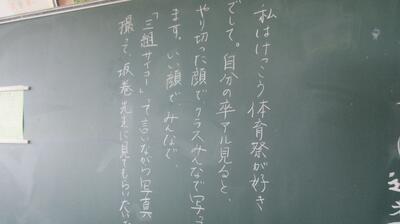 私はけっこう体育祭が好き
でして。自分の卒アル見ると、
やり切った顔で、クラスみんなで写って
ます。いい顔で、みんなで、
「三組サイコー」って言いながら写真
撮って、坂巻先生に見てもらいたい